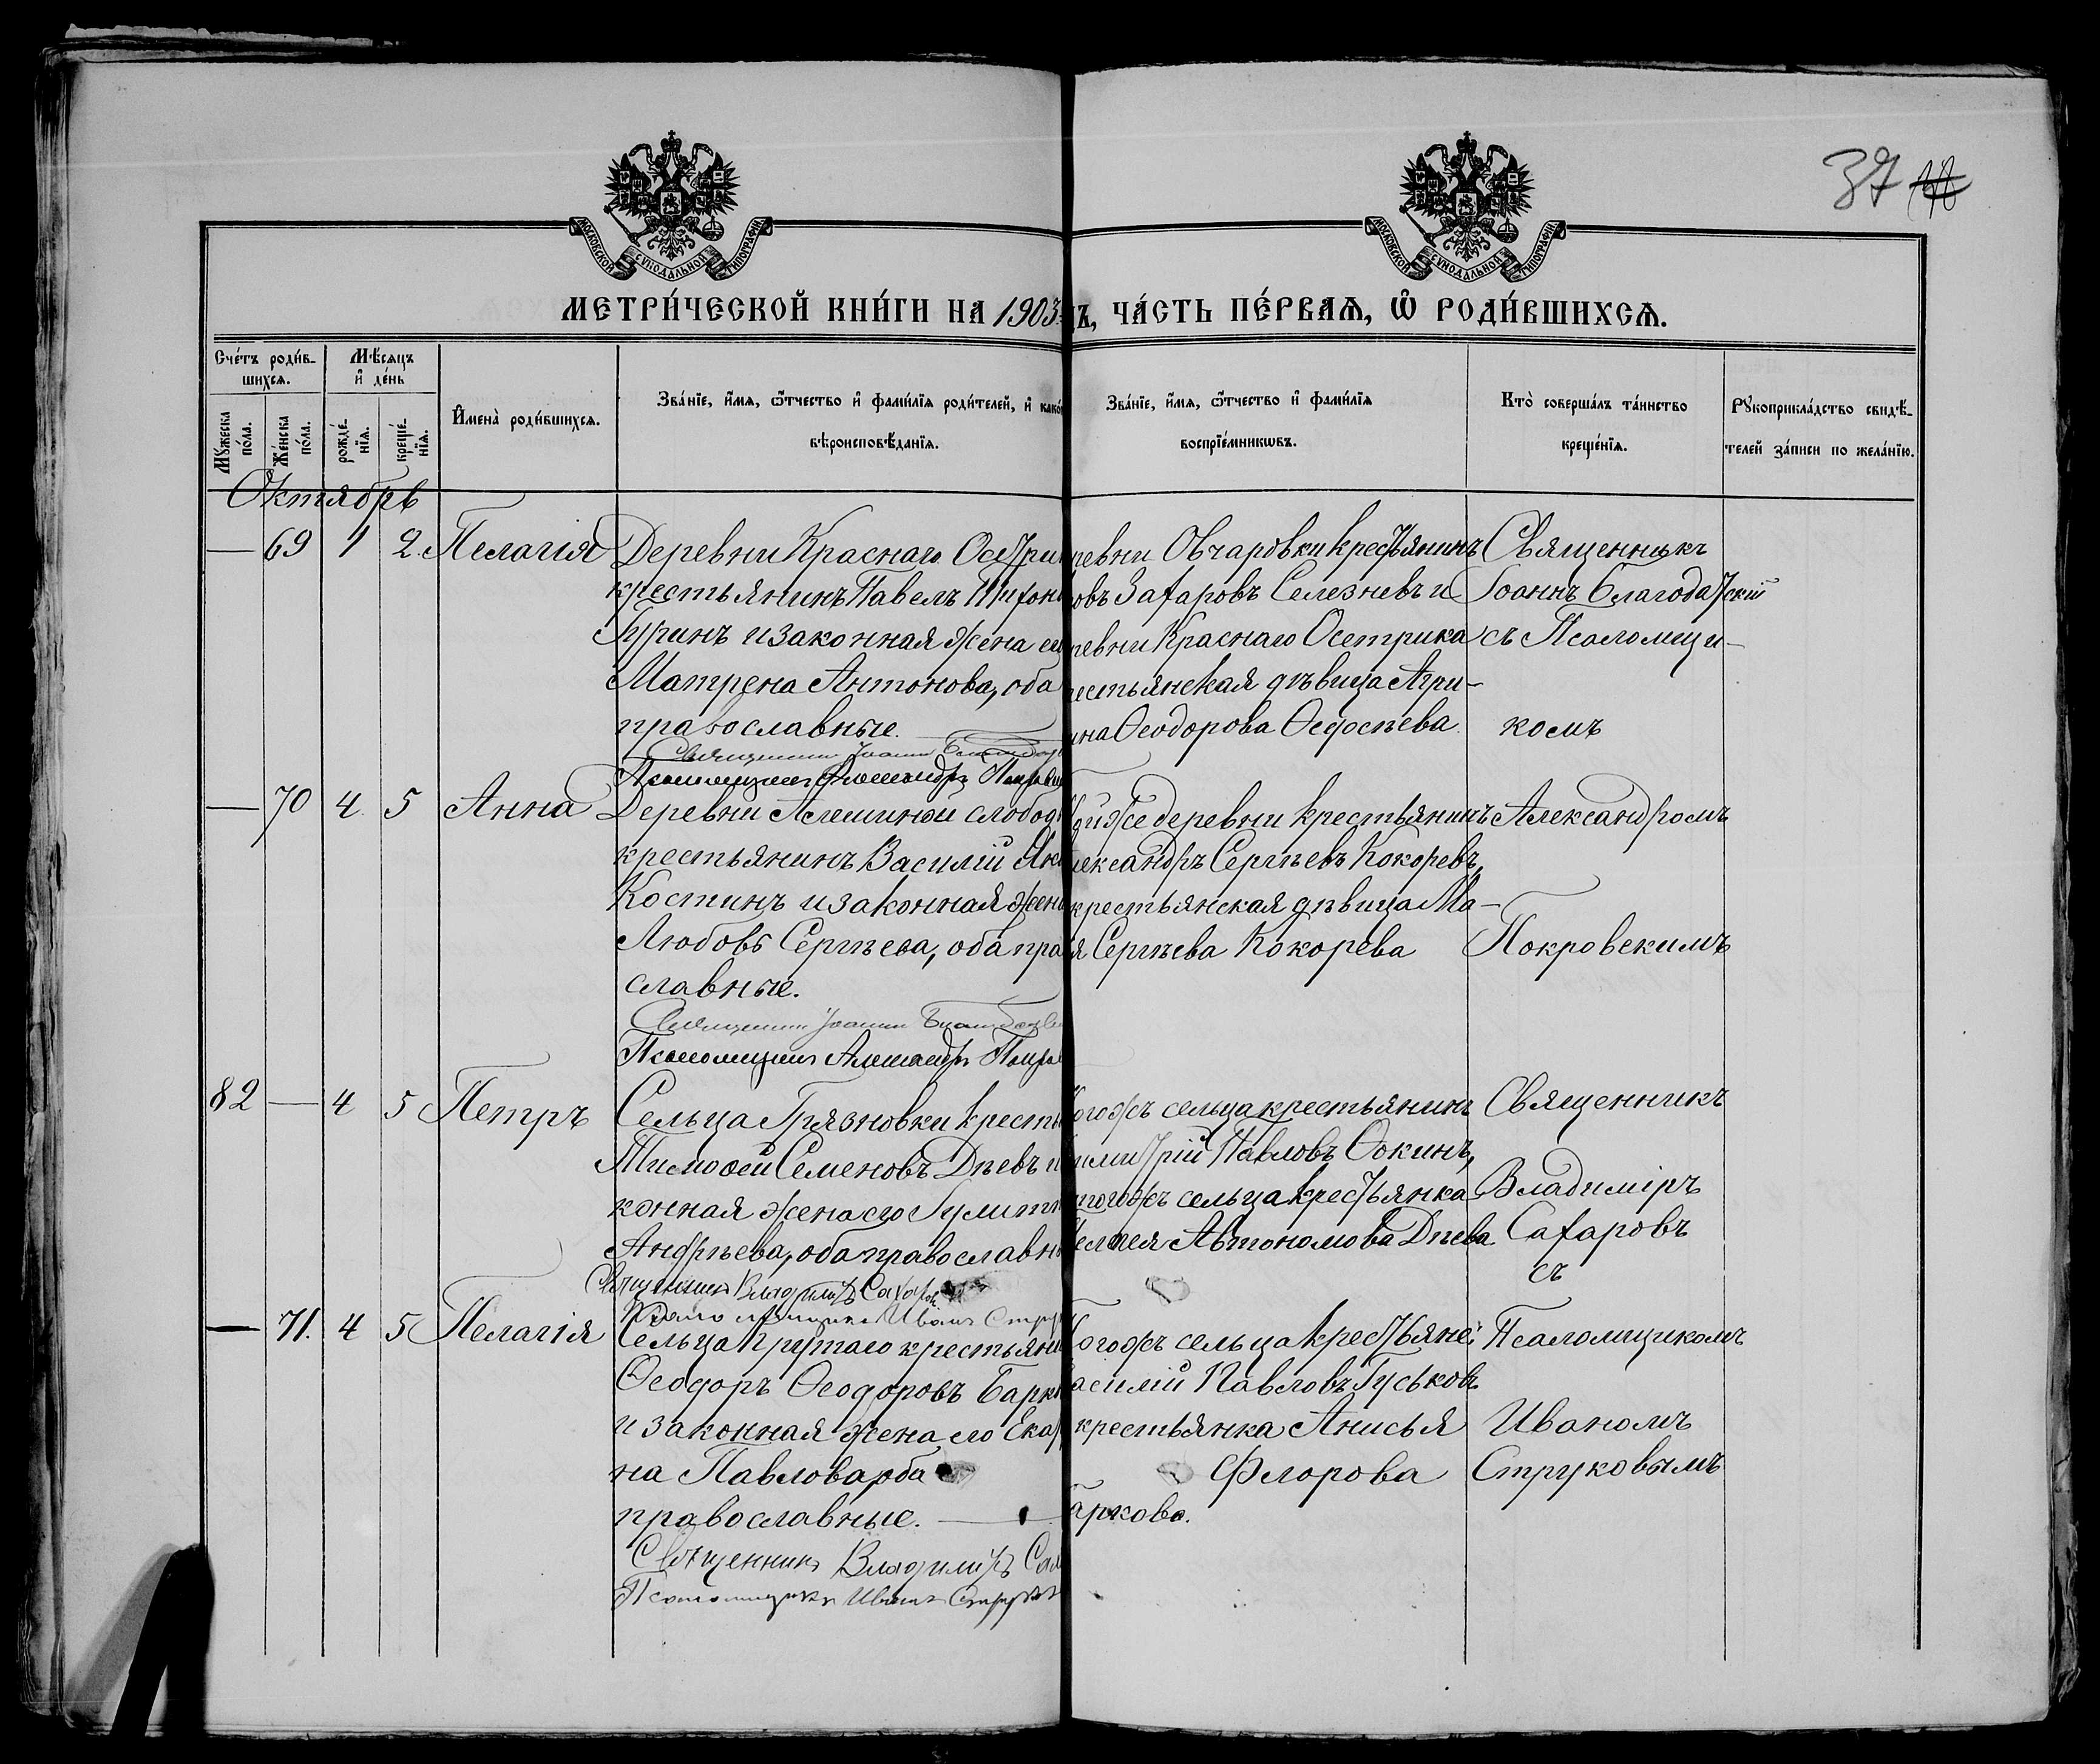 37
МОСКОВСКОЙ СУНОДАЛЬНОЙ ТИПОГРАФІИ
МОСКОВСКОЙ СУНОДАЛЬНОЙ ТИПОГРАФІИ
МЕТРИ́ЧЕСКОЙ КНИ́ГИ НА 1903
Ъ, ЧА́СТЬ ПЕ́РВАѦ, Ѡ҆ РОДИ́ВШИХСѦ.
Сче́тъ роди́в-
шихсѧ.
Мꙋ́жеска
по́ла.
Же́нска
по́ла.
Мѣ́сѧцъ
и҆ де́нь
рожде́-
нїѧ.
креще́-
нїѧ.
И҆мена̀ роди́вшихсѧ.
Зва́нїе, и҆́мѧ, ѻ҆́тчество и҆ фами́лїѧ роди́телей, и҆ како́
вѣроисповѣ́данїѧ.
Зва́нїе, и҆́мѧ, ѻ҆́тчество и҆ фами́лїѧ
воспрїе́мникѡвъ.
Кто̀ соверша́лъ та́инство
креще́нїѧ.
Рꙋкоприкла́дство свидѣ́-
телей за́писи по жела́нїю.
Октябрь
— 69 1 2. Пелагія
Деревни Краснаго Осетри
крестьянинъ Павелъ Тихон
Гуринъ и законная жена ег
Матрена Антонова, оба
православные.
Священникъ Іоаннъ Благодат
Псаломщикъ Александръ Покровск
ревни Овчаровки крестьянинъ
овъ Захаровъ Селезневъ и
ревни Краснаго Осетрика
рестьянская дѣвица Агри-
ина Ѳеодорова Ѳедосѣева
Священникъ
Іоаннъ Благодатскій
съ Псаломщи-
комъ
— 70 4 5 Анна
Деревни Алешиной слобод
крестьянинъ Василій Як
Костинъ и законная жен
Любовь Сергѣева, оба пра
славные.
Священникъ Іоаннъ Благодат
Псаломщикъ Александръ Покров
й же деревни крестьянинъ
лександръ Сергѣевъ Кокоревъ,
крестьянская дѣвица Ма-
я Сергѣева Кокорева
Александромъ
Покровскимъ
82 — 4 5 Петръ
Сельца Грязновки кресть
Тимоѳей Семеновъ Дѣевъ и
конная жена его Іулитт
Андрѣева, оба православн
Священникъ Владиміръ Сахаров
Псаломщикъ Иванъ Стру
огожъ сельца крестьянинъ
имитрій Павловъ Ѳокинъ,
тогожъ сельца крестьянка
Пелагея Автономова Дѣева
Священникъ
Владиміръ
Сахаровъ
съ
— 71. 4 5 Пелагія
Сельца Крутаго крестьяни
Ѳеодоръ Ѳеодоровъ Барк
и законная жена его Ека
на Павлова оба
православные.
Священникъ Владиміръ Сах
Псаломщикъ Иванъ Струков
огожъ сельца крестьяне:
асилій Павловъ Гуськовъ
крестьянка Анисья
Флорова
аркова.
Псаломщикомъ
Иваномъ
Струковымъ